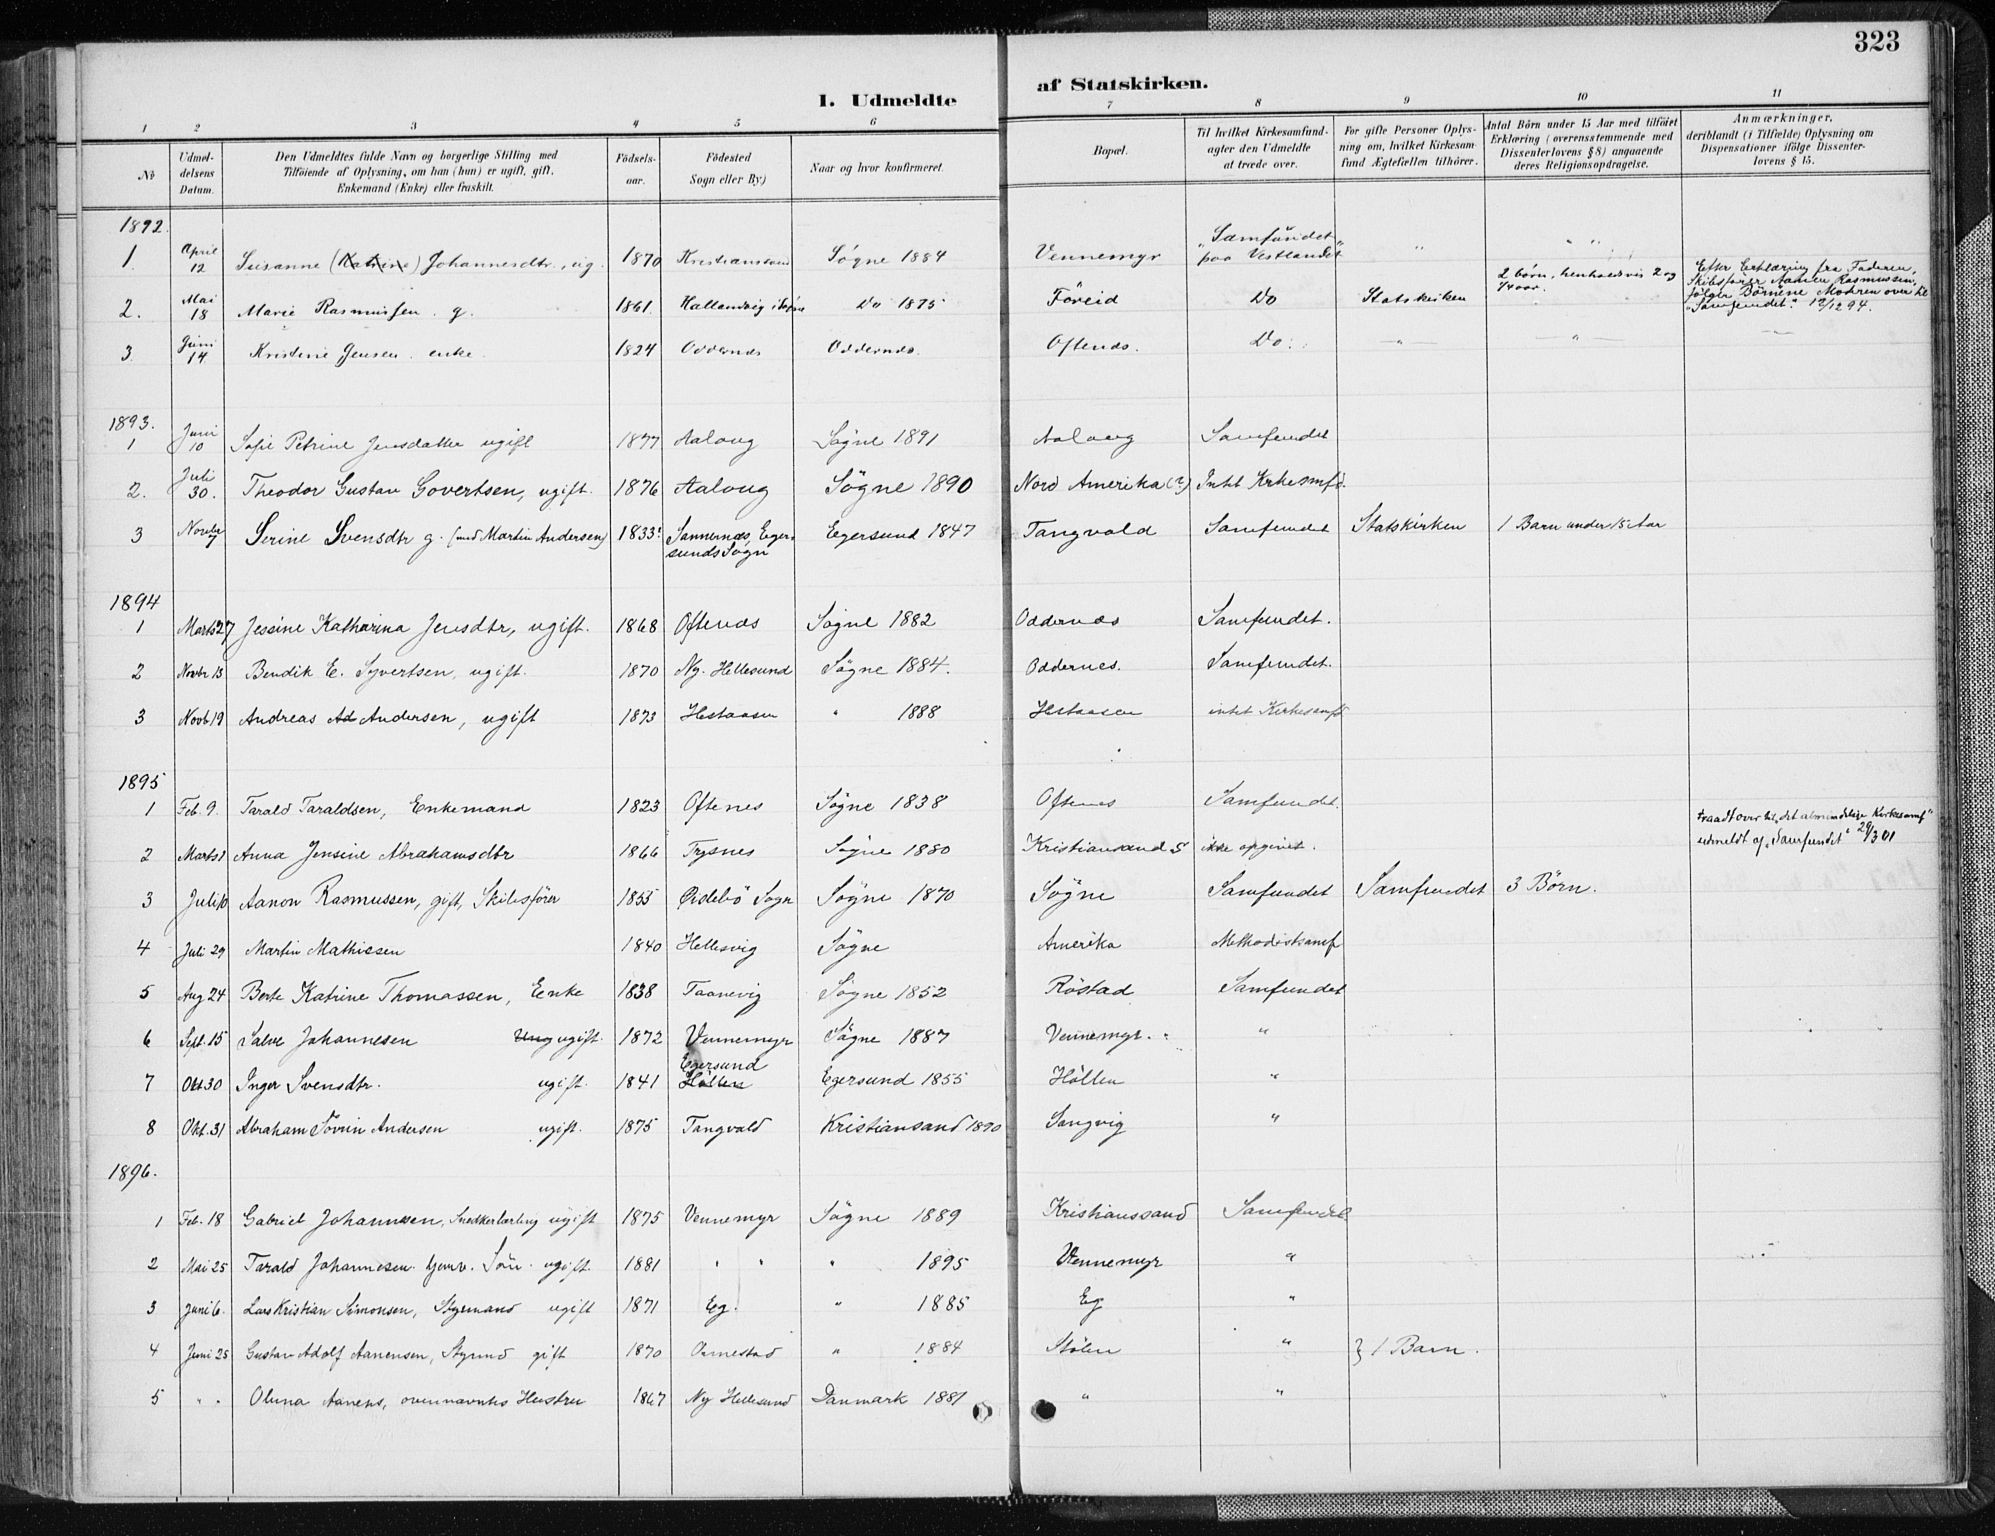 323
I. Udmeldte af Statskirken.
1 2 3 4 5 6 7 8 9 10 11
No
Udmeldelsens Datum.
Den Udmeldtes fulde Navn og borgerlige Stilling med
Tilföiende af Oplysning, om han (hun) er ugift, gift,
Enkemand (Enke) eller fraskilt.
Födselsaar.
Födested
Sogn eller By)
Naar og hvor konfirmeret.
Bopæl.
Til hvilket Kirkesamfund
agter den Udmeldte
at træde over.
For gifte Personer Oplys-
ning om, hvilket Kirkesam-
fund Ægtefællen tilhörer.
Antal Börn under 15 Aar med tilföiet
Erklæring (overensstemmende med
Dissenterlovens § 8) angaaende
deres Religionsopdragelse.
Anmærkninger,
deriblandt (i Tilfælde) Oplysning om
Dispensationer ifölge Dissenter-
lovens § 15.
1892.
1. April 12 Susanne (Katrine) Johannesdtr., ug. 1870 Kristianssand Søgne 1884 Vennemyr "Samfundet" paa Vestlandet " " "
2. Mai 18 Marie Rasmussen. g. 1861. Hallandvig i Søgne Do 1875 Föreid Do Statskirken 2 börn, henholdsvis 2 og 1/4 aar. Efter Erklæring fra Faderen, Skibsförer Aanen Rasmussen, fölger Börnene Moderen over til "Samfundet". 12/12 94.
3. Juni 14 Kristine Jensen. enke. 1824 Oddernes Oddernes. Oftenes. Do. — " — — " — —
1893.
1 Juni 10 Sofie Petrine Jensdatter ugift 1877 Aaloug Søgne 1891 Aaloug Samfundet
2. Juli 30. Theodor Gustav Govertsen, ugift. 1876 Aaloug Søgne 1890 Nord Amerika (?) Intet Krkesmfd.
3 Novbr 7 Serine Svensdtr g. (med Martin Andersen) 1833: Sannernæs, Egersunds Sogn Egersund 1847 Tangvald Samfundet Statskirken 1 Barn under 15 Aar
1894
1 Marts 27 Jessine Katharina Jensdtr, ugift. 1868 Oftenæs Søgne 1882 Oddernæs Samfundet.
2 Novbr 13 Bendik E. Syvertsen, ugift. 1870 Ny. Hellesund Søgne 1884. Oddernes. Samfundet.
3 Novb 19 Andreas Ad Andersen, ugift 1873 Hestaasen " 1888 Hestaasen intet Kirkesamfd
1895
1 Feb. 9. Tarald Taraldsen, Enkemand 1823 Oftenes Søgne 1838 Oftenes Samfundet.
2 Marts 1 Anna Jensine Abrahamsdtr 1866 Trysnes Søgne 1880 Kristiansand S ikke opgivet. traadt over til "det almindelige Kirkesamf" udmeldt af "Samfundet" 29/3 01
3 Juli 10 Aanon Rasmussen, gift, Skibsförer 1855 Øislebö Sogn Søgne 1870 Søgne Samfundet Samfundet 3 Börn.
4 Juli 29 Martin Mathiesen 1840 Hellesvig Søgne Amerika Methodistsamf
5 Aug 24 Berte Katrine Thomassen, Eenke 1838 Taanevig Søgne 1852 Röstad Samfundet
6 Sept. 15 Salve Johannesen Ung ugift. 1872 Vennemyr Søgne 1887 Vennemyr. "
7 Okt 30 Inger Svensdtr. ugift. 1841 Egersund Höllen Egersund 1855 Höllen "
8 Okt. 31 Abraham Sövrin Andersen ugift. 1875 Tangvald Kristiansand 1890 Sangvig "
1896.
1 Feb. 18 Gabriel Johannesen, Snedkerlærling ugift 1875 Vennemyr Søgne 1889 Kristianssand Samfundet
2 Mai 25 Tarald Johannesen. Sön. ugift. 1881 " " " 1895 Vennemyr "
3 Juni 6. Lars Kristian Simonsen, Styrmand ugift 1871 Eg. " 1885 Eg "
4 Juni 25 Gustav Adolf Aanensen, Styrmd gift 1870 " 1884 Stölen " } 1 Barn.
5 " " Oluna Aanens, ovennævntes Hustru 1867 Ny Hellesund Danmark 1881 " "